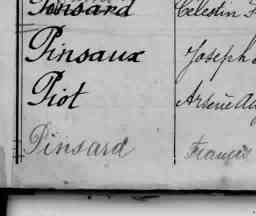 Pinsard Célestin
Pinsaux Joseph
Piot Arsène
Pinsard Francis